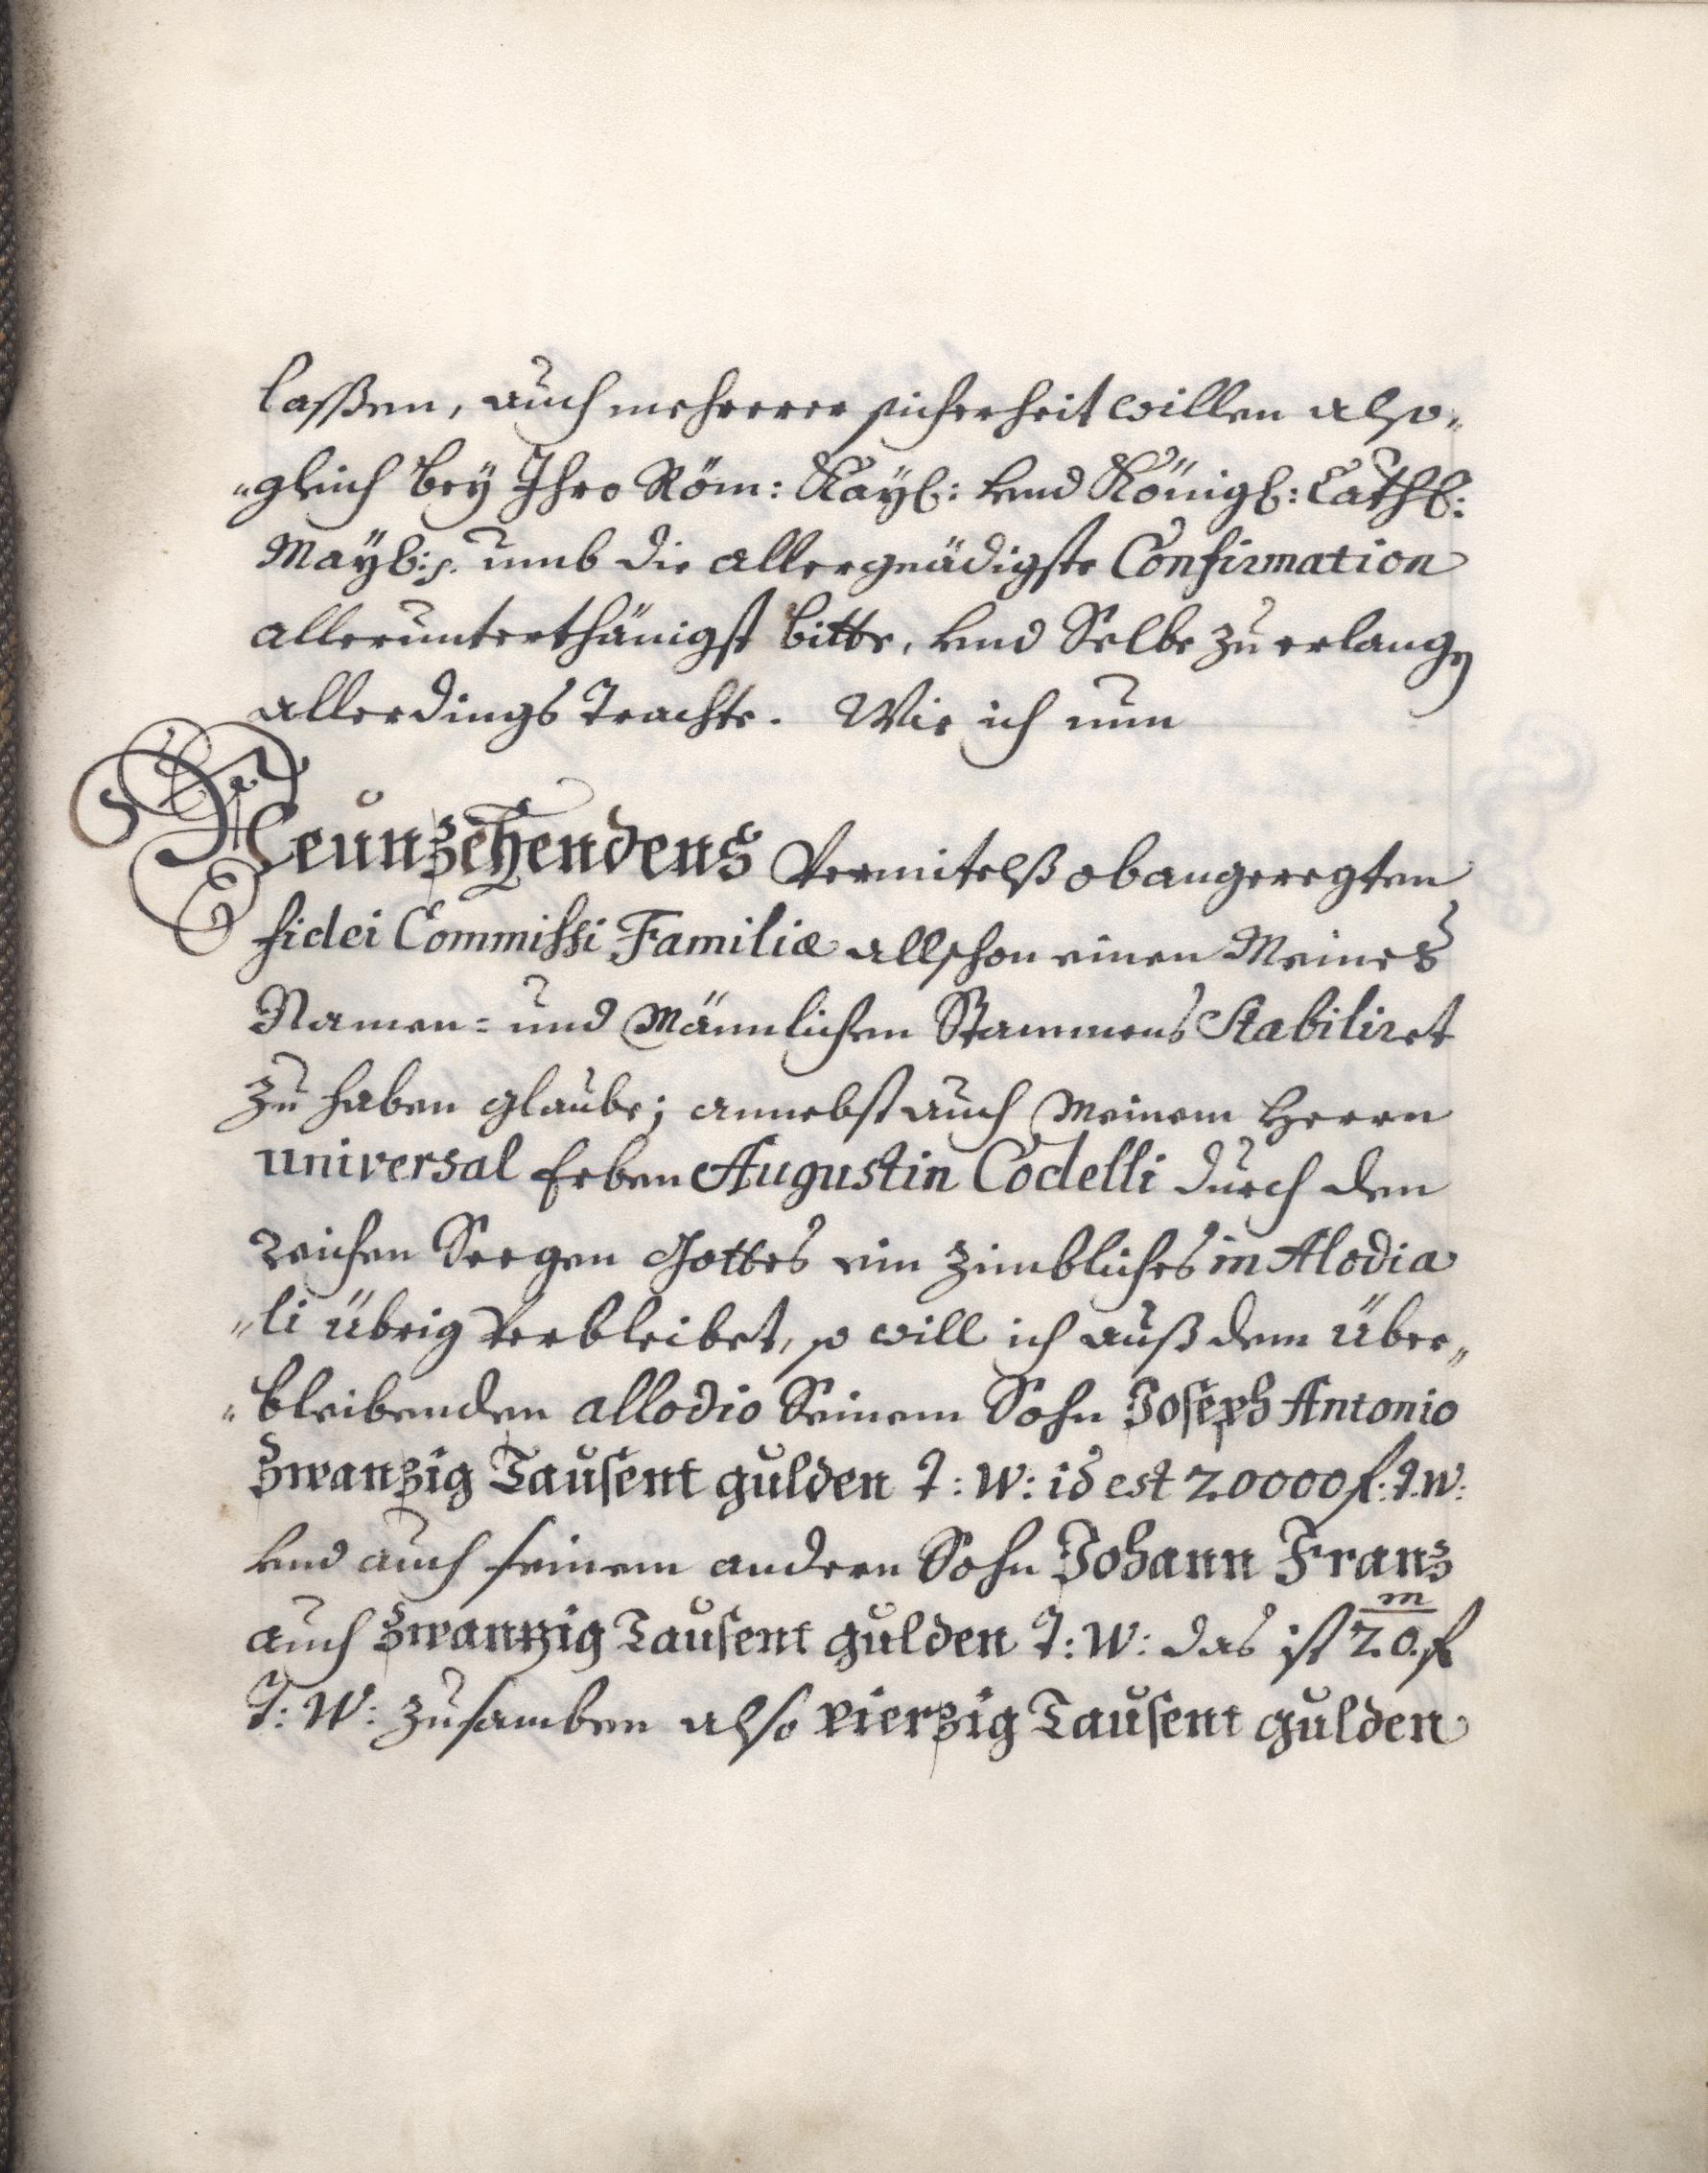 laßen, auch mehrerer sicherheit willen also„
„gleich bey Ihro Röm: Kayl: und Königl: Cathl:
Mayl:s. umb die allergnädigste Confirmation
allerunterthänigst bitte, und Selbe zu erlangen
allerdings trachte. Wie ich nun
Neünzehendens Vermitelß obangeregten
fidei Commissi Familiæ allschon einen Meines
Namen= und Männlichen Stammens Stabiliret
zu haben glaube; annebst auch Meinem Herrn
universal Erben Augustin Codelli durch den
reichen Seegen Gottes ein zimbliches in Alodia
„li übrig Verbleibet, so will ich auß dem über„
„bleibenden allodio Seinem Sohn Joseph Antonio
Zwanzig Taŭsent gŭlden T: W: id est 20000 f: T.W:
und auch seinem andern Sohn Johann Franz
auch Zwantzig Taŭsent gŭlden T: W: das ist 20.m f
T: W: zusamben also vierzig Taŭsent gŭlden